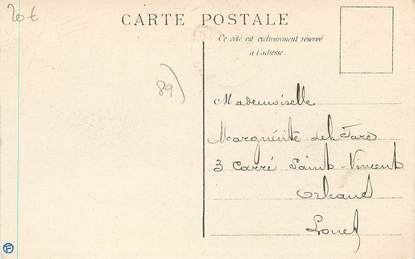 20 €
CARTE POSTALE
Ce côté est exclusivement réservé
à l'adresse.
89)
Mademoiselle
Marguerite
3 Carré Saint-Vincent
Orléans
Loiret